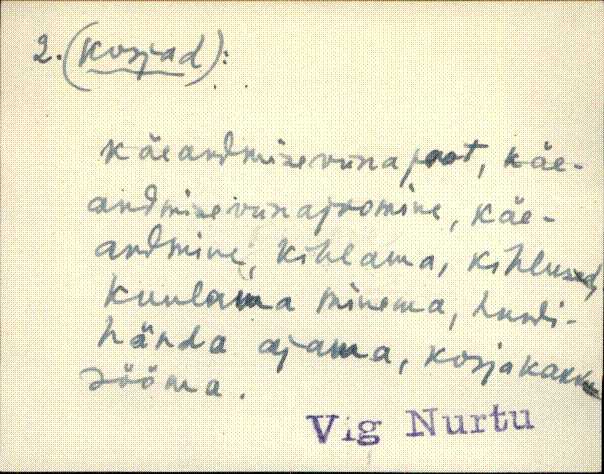 2. (Kosjad):
käeandmiseviinapoot, käe-
andmiseviinajoomine, käe-
andmine, kihlama, kihlused,
kuulama minema, hundi-
hända ajama, kosjakakku
sööma.
Vig Nurtu